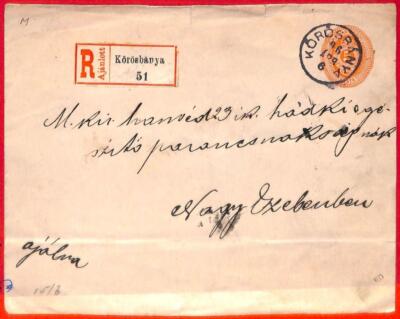 M
R
Ajánlott
Körösbánya
51
KÖRÖSBÁNYA
M. kir. honvéd 23 ik. hadkiegé-
szitő parancsnokságnak
Nagy Szebenben
ajálva